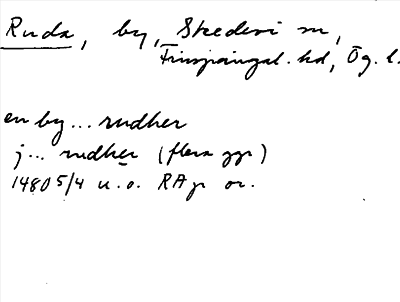 Ruda, by, Skedevi sn,
Finspångal. hd, Ög. l.
en by... rudher
j... rudher (flera ggr)
1480 5/4 u.o. RAp or.